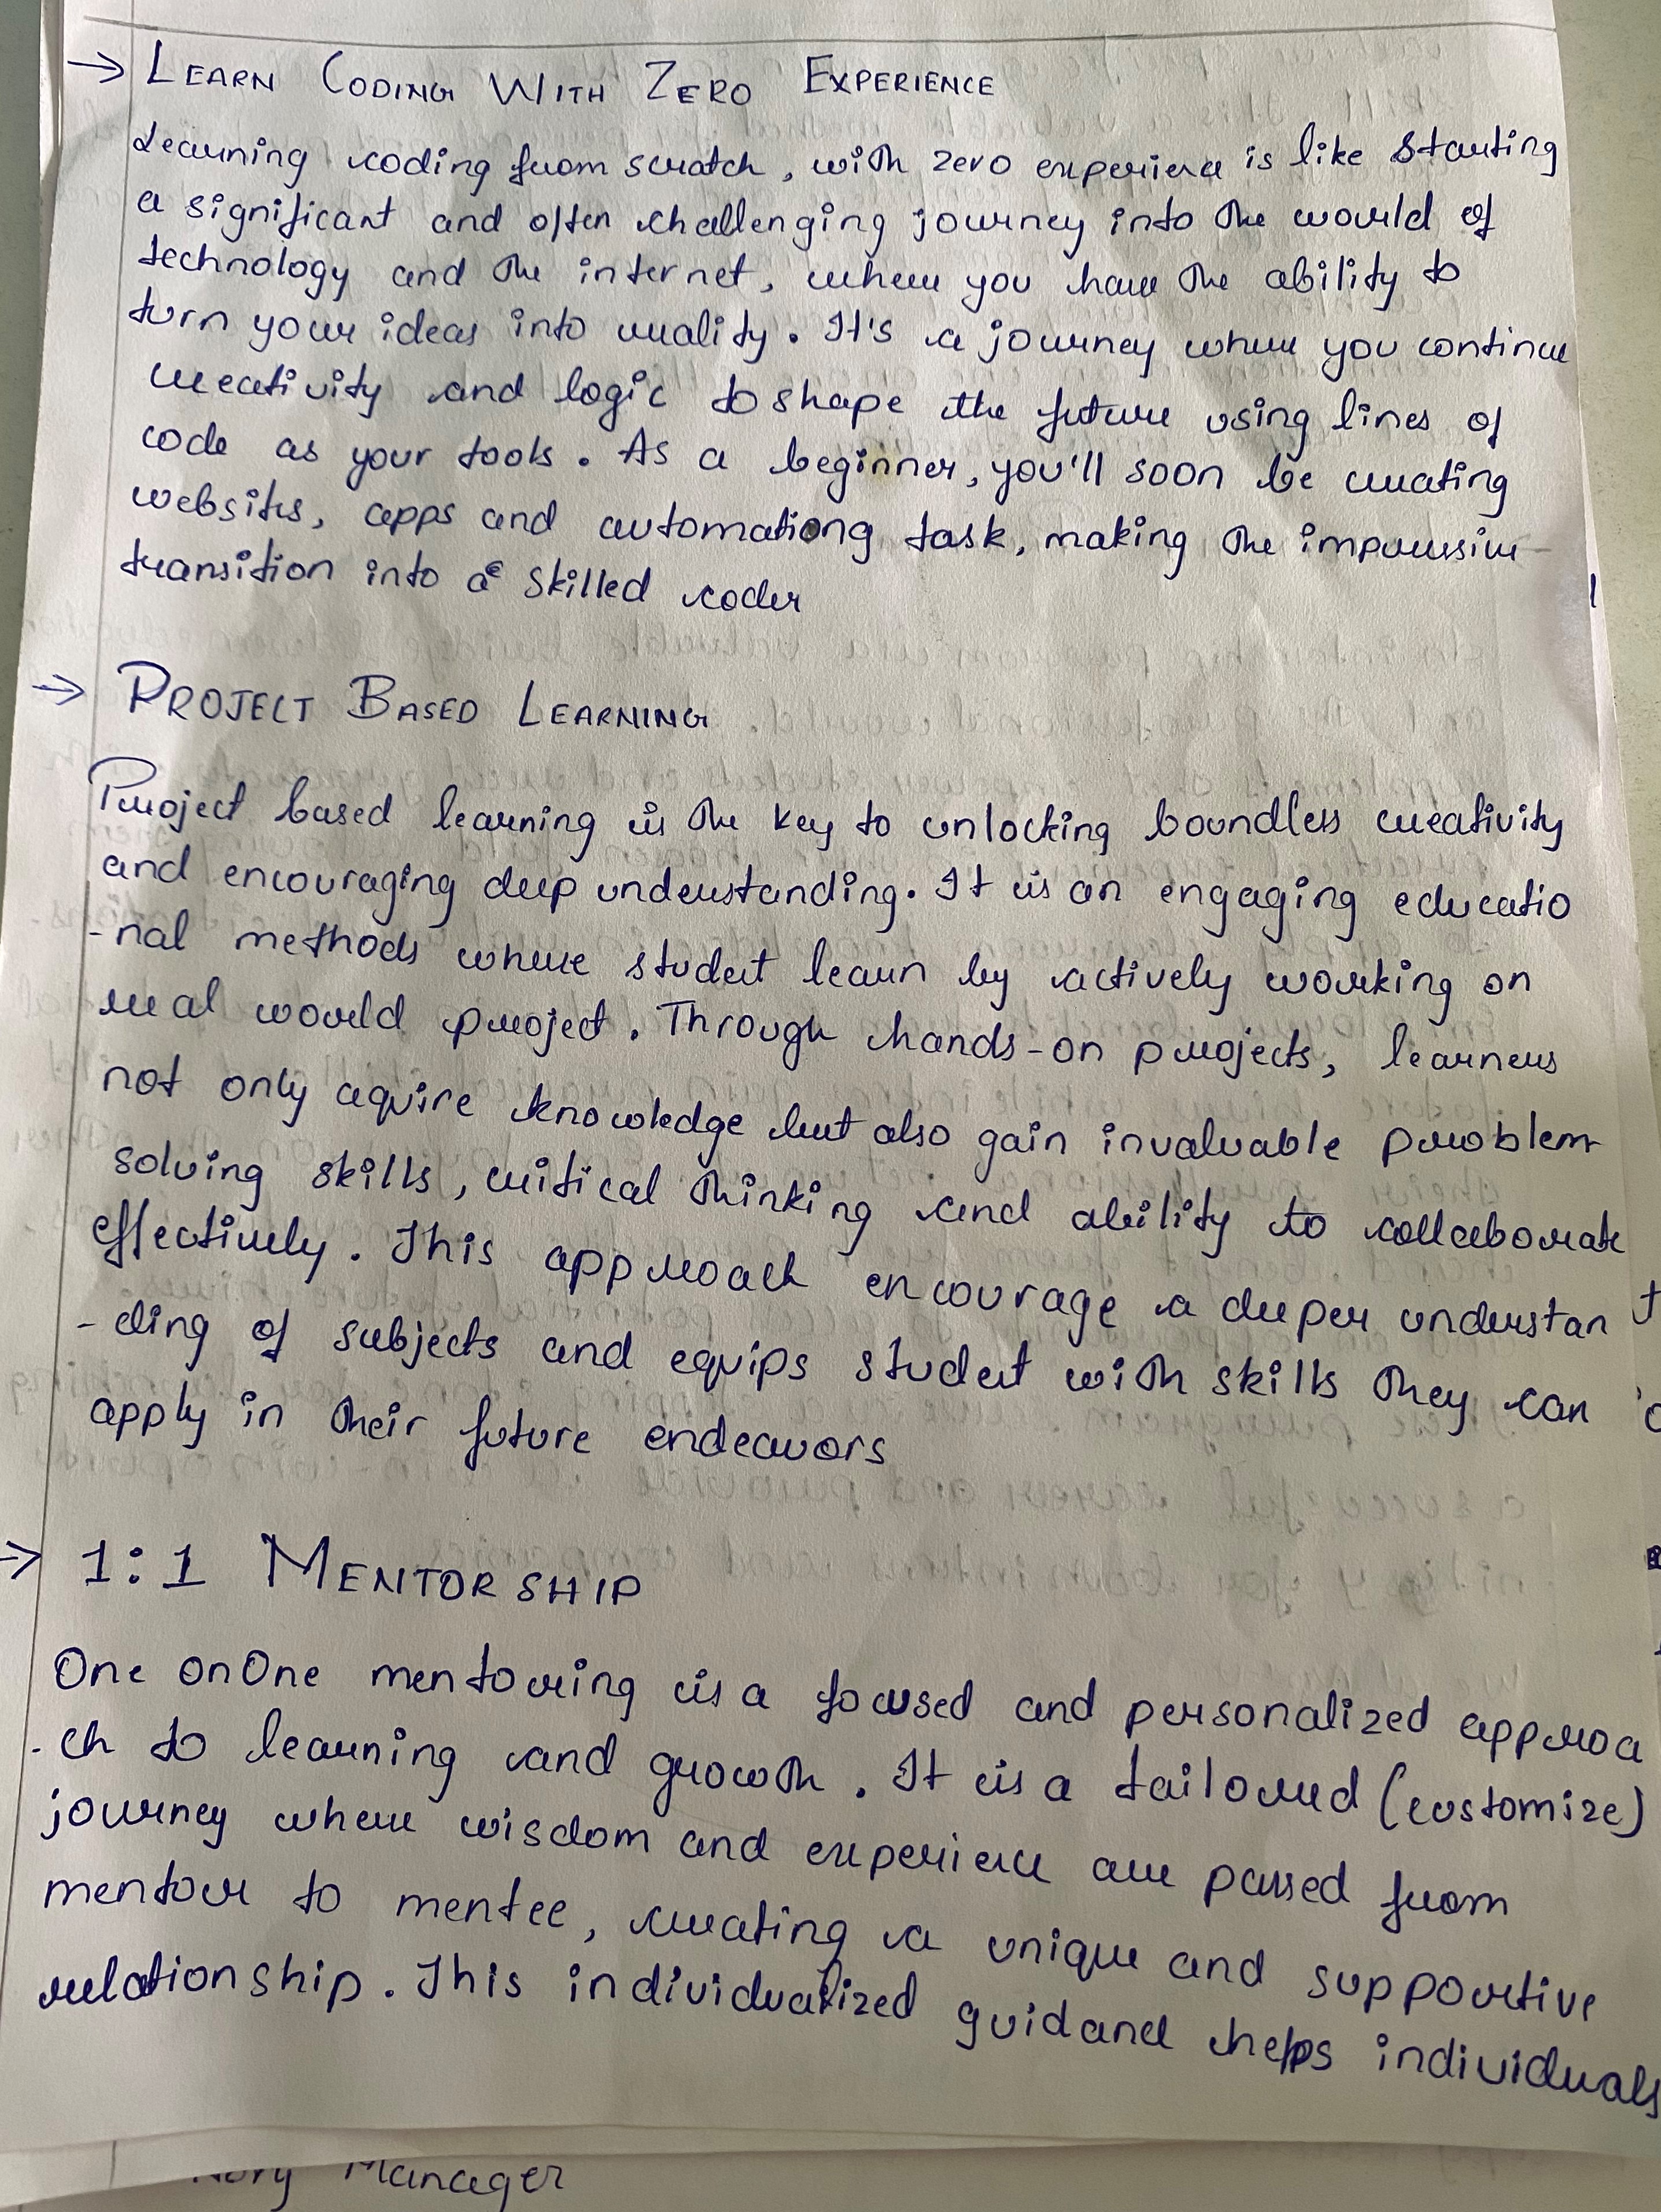 → LEARN CODING WITH ZERO EXPERIENCE
Learning coding from scratch, with zero experience is like starting
a significant and often challenging journey into the world of
technology and the internet, where you have the ability to
turn your ideas into reality. It's a journey where you continue
creativity and logic to shape the future using lines of
code as your tools. As a beginner, you'll soon be creating
websites, apps and automationg task, making the impressive
transition into a skilled coder
→ PROJECT BASED LEARNING
Project based learning is the key to unlocking boundless creativity
and encouraging deep understanding. It is an engaging educatio
-nal methods where student learn by actively working on
real world project. Through hands-on projects, learners
not only aquire knowledge but also gain invaluable problem
solving skills, critical thinking and ability to collaborate
effectively. This approach encourage a deeper understan
-ding of subjects and equips student with skills they can
apply in their future endeavors
→ 1:1 MENTORSHIP
One onOne mentoring is a focused and personalized approa
-ch to learning and growth. It is a tailored (customize)
journey where wisdom and experience are passed from
mentor to mentee, creating a unique and supportive
relationship. This individualized guidance helps individuals
Manager